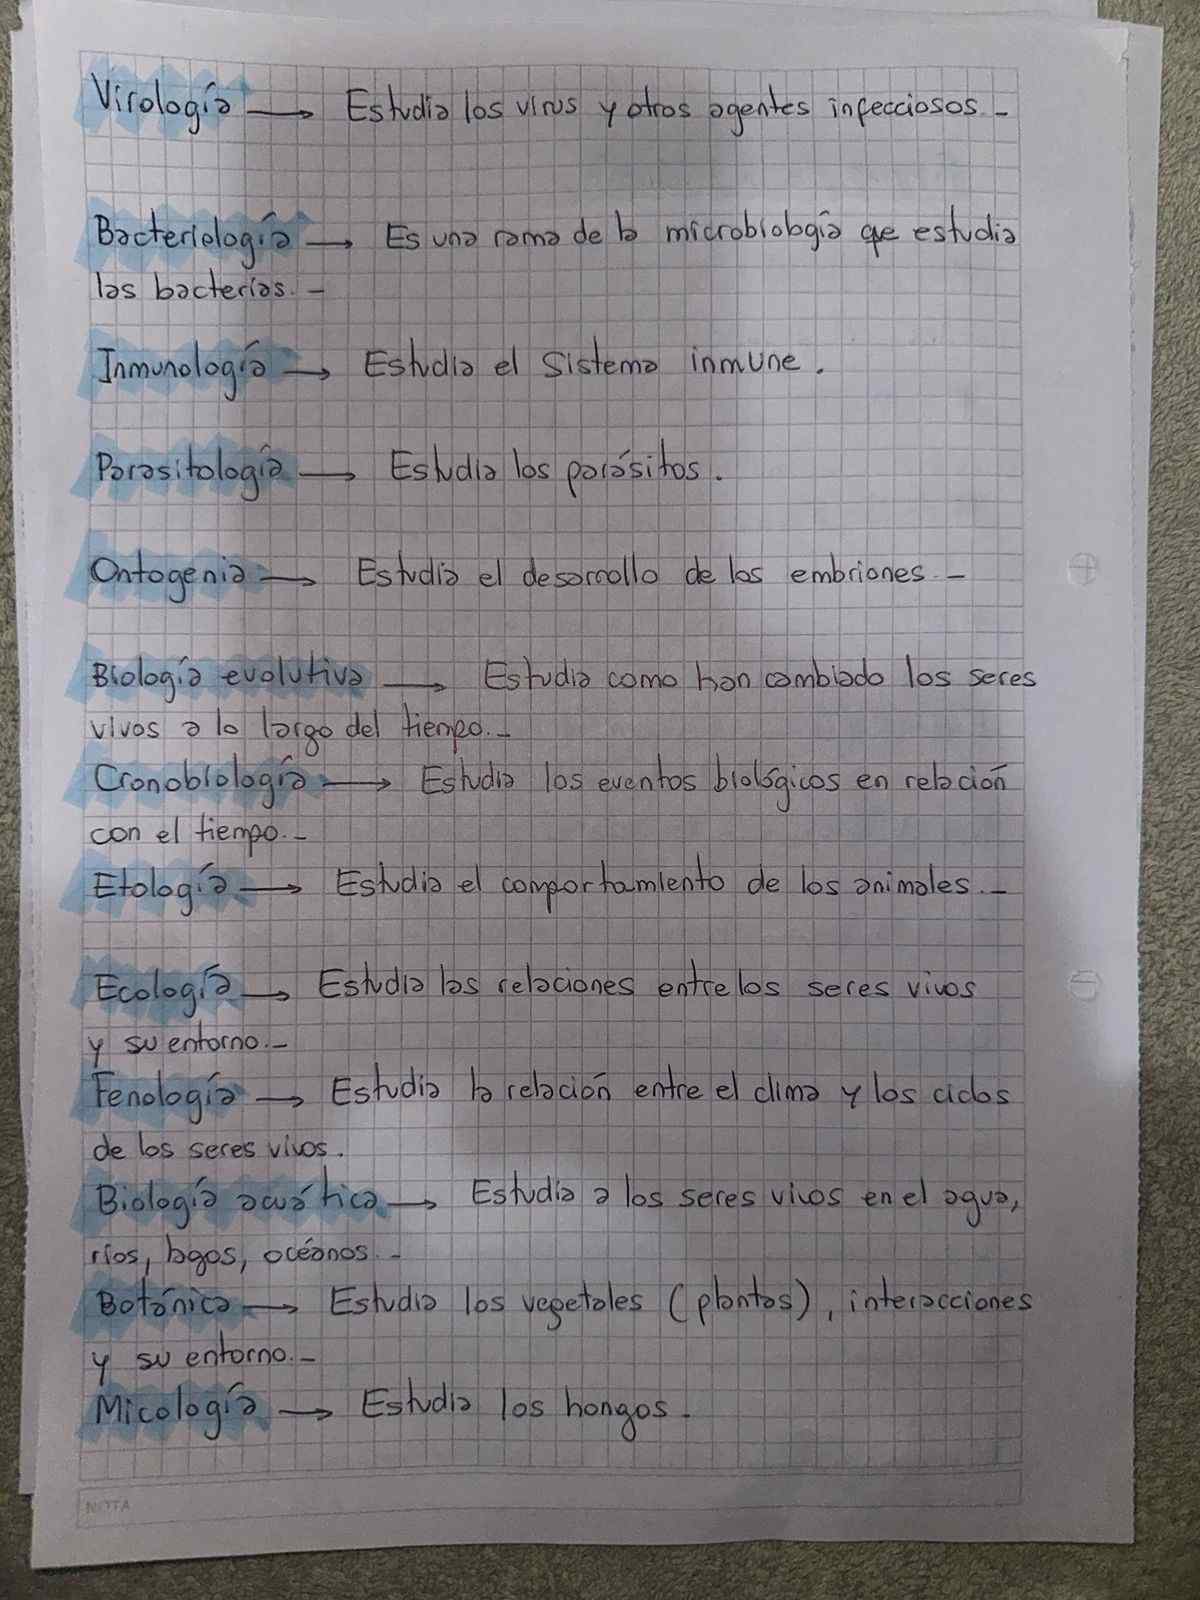 Virología → Estudia los virus y otros agentes infecciosos.-
Bacteriología → Es una rama de la microbiología que estudia
las bacterias.-
Inmunología → Estudia el Sistema inmune.
Parasitología → Estudia los parásitos.
Ontogenia → Estudia el desarrollo de los embriones.-
Biología evolutiva → Estudia como han cambiado los seres
vivos a lo largo del tiempo.-
Cronobiología → Estudia los eventos biológicos en relación
con el tiempo.-
Etología → Estudia el comportamiento de los animales.-
Ecología → Estudia las relaciones entre los seres vivos
y su entorno.-
Fenología → Estudia la relación entre el clima y los ciclos
de los seres vivos.
Biología acuática → Estudia a los seres vivos en el agua,
ríos, lagos, océanos.-
Botánica → Estudia los vegetales (plantas), interacciones
y su entorno.-
Micología → Estudia los hongos.
NOTA